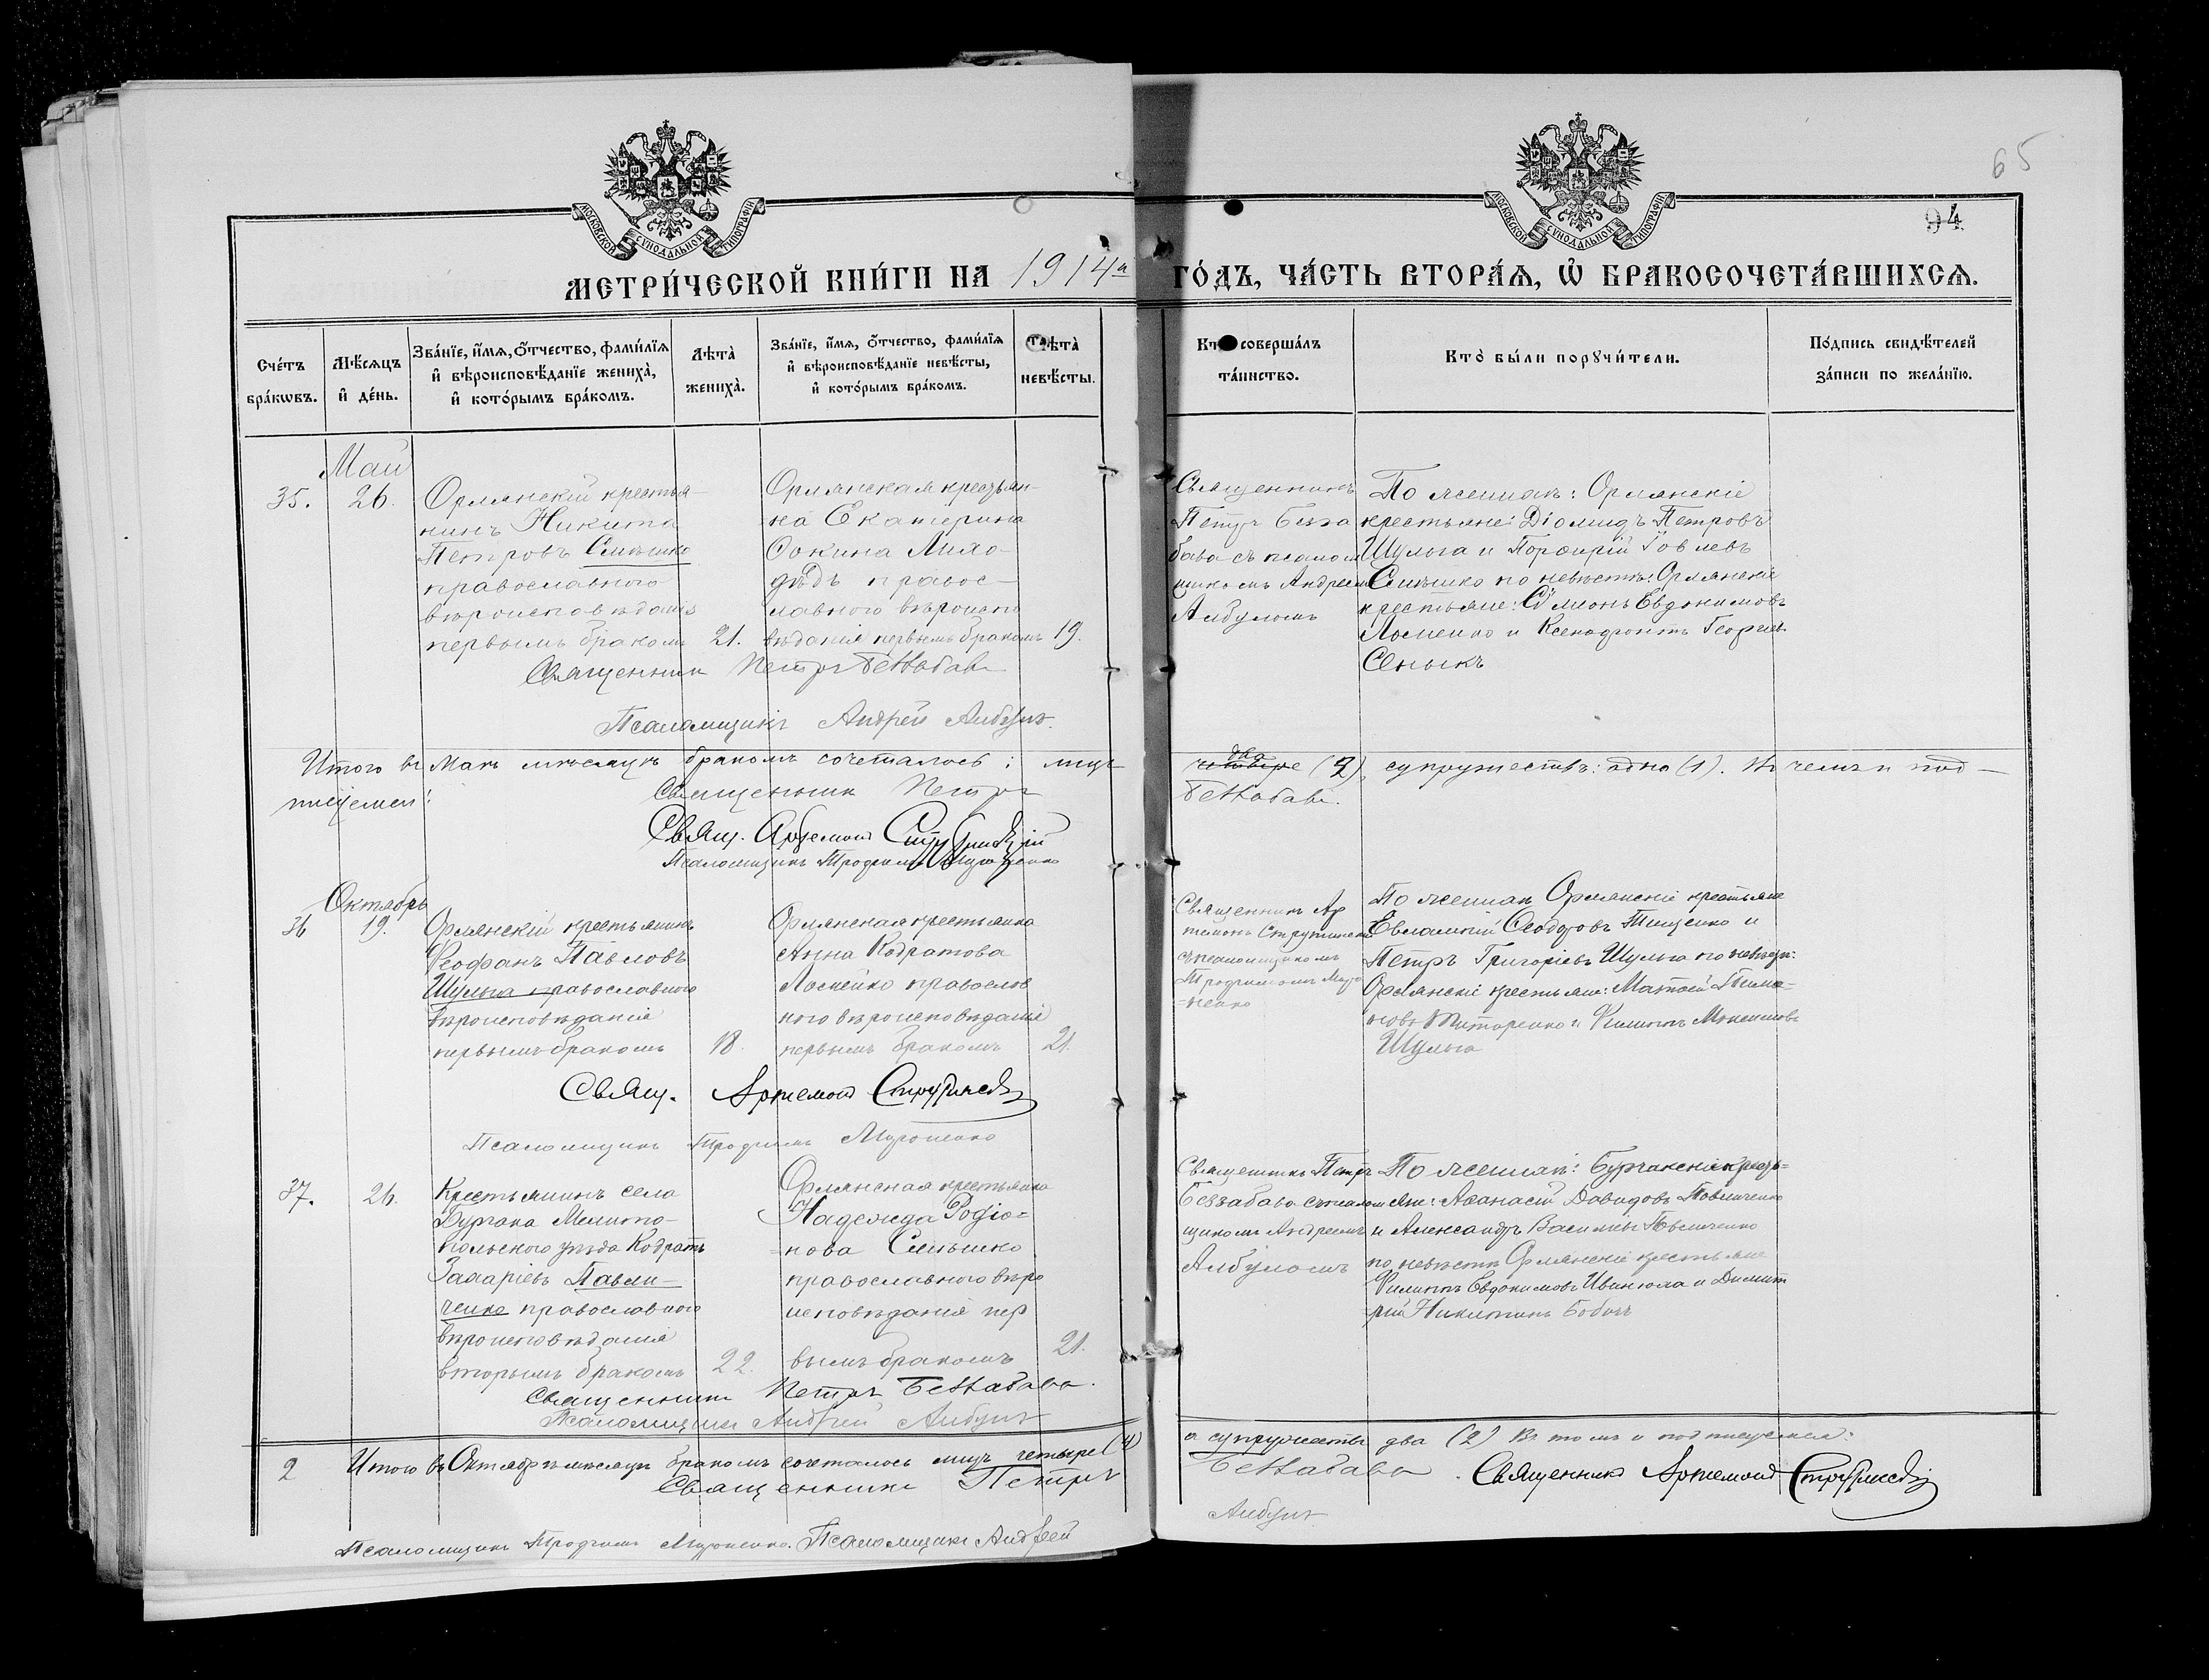 65
94
МОСКОВСКОЙ СѴНОДАЛЬНОЙ ТИПОГРАФІИ
МОСКОВСКОЙ СѴНОДАЛЬНОЙ ТИПОГРАФІИ
МЕТРИ́ЧЕСКОЙ КНИ́ГИ НА 1914а ГО́ДЪ, ЧА́СТЬ ВТОРА́Ѧ, Ѽ БРАКОСОЧЕТА́ВШИХСѦ.
Сче́тъ бра́кѡвъ.
Мѣ́сѧцъ и҆ де́нь.
Зва́нїе, и҆́мѧ, ѻ҆́тчество, фами́лїѧ
и҆ вѣроисповѣ́данїе жениха̀,
и҆ кото́рымъ бра́комъ.
Лѣ́та̀ жениха̀.
Зва́нїе, и҆́мѧ, ѻ҆́тчество, фами́лїѧ
и҆ вѣроисповѣ́данїе невѣ́сты,
и҆ кото́рымъ бра́комъ.
Лѣ́та̀ невѣ́сты.
Кто̀ соверша́лъ та́инство.
Кто̀ бы́ли порꙋчи́тели.
По́дпись свидѣ́телей
за́писи по жела́нїю.
Май
35.
26.
Орлянскій крестья-
нинъ Никита
Петровъ Слѣшко
православнаго
вѣроисповѣданія
первымъ бракомъ
21.
Орлянская крестьян-
ка Екатерина
Фокина Лихо-
дѣдъ правос-
лавного вѣроиспо
вѣданія первымъ бракомъ
19.
Священникъ
Петръ Безза
бава съ псалом
щикомъ Андреем
Албуломъ
По женихѣ: Орлянскіе
крестьяне: Діомидъ Петровъ
Шульга и Порфирій Іовлевъ
Слѣшко по невѣстѣ: Орлянскіе
крестьяне: Сѵмеонъ Евдокимовъ
и Ксенофонтъ Георгіев
Сеныкъ
Священникъ Петръ Беззабава
Псаломщикъ Андрей Албулъ
Итого въ Маѣ мѣсяцѣ бракомъ сочеталось: лицъ
два
четыре (2), супружествъ: одно (1). Въ чемъ и под-
писуемся:
Священникъ Петръ
Беззабава.
Свящ. Артемонъ Струтинскій
Псаломщикъ Трофимъ Мироненко
Октябрь
36
19.
Орлянскій крестьянинъ
Феофанъ Павловъ
Шульга православного
вѣроисповѣданія
первымъ бракомъ
18.
Орлянская крестьянка
Анна Кодратова
православ
ного вѣроисповѣданія
первымъ бракомъ
21.
Священникъ Ар
темонъ Струтинскій
съ псаломщикомъ
Трофимомъ Миро
=ненко
По женихѣ Орлянскіе крестьяне
Евлампій Ѳеодоровъ Тищенко и
Петръ Григорьевъ Шульга по невѣстѣ:
Орлянскіе крестьяне: Матѳей
Титаренко и Филиппъ Максимовъ
Шульга
Свящ. Артемонъ Струтинскій
Псаломщикъ Трофимъ Мироненко
37.
26.
Крестьянинъ села
Бургака Мелито-
польского уѣзда Кодратъ
Захаріевъ Павли-
ченко православного
вѣроисповѣданія
вторымъ бракомъ
22.
Орлянская крестьянка
Надежда Родіо=
=нова Слѣшко
православного вѣро
исповѣданія пер
вымъ бракомъ
21.
Священникъ Петръ
Беззабава съ псалом
щикомъ Андреемъ
Албуломъ
По женихѣ: Бургакскіе кресть-
яне: Аѳанасій Давидовъ Павличенко
и Александръ Василіевъ Павличенко
по невѣстѣ Орлянскіе крестьяне
Филиппъ Евдокимовъ и Димит
рій Никитинъ
Священникъ Петръ Беззабава.
Псаломщикъ Андрей Албулъ
2
Итого въ Октябрѣ мѣсяцѣ бракомъ сочеталось лицъ четыре (4)
а супружествъ два (2) Въ томъ и подписуемся:
Священникъ Петръ
Беззабава. Священникъ Артемонъ Струтинскій
Псаломщикъ Трофимъ Мироненко. Псаломщикъ Андрей
Албулъ